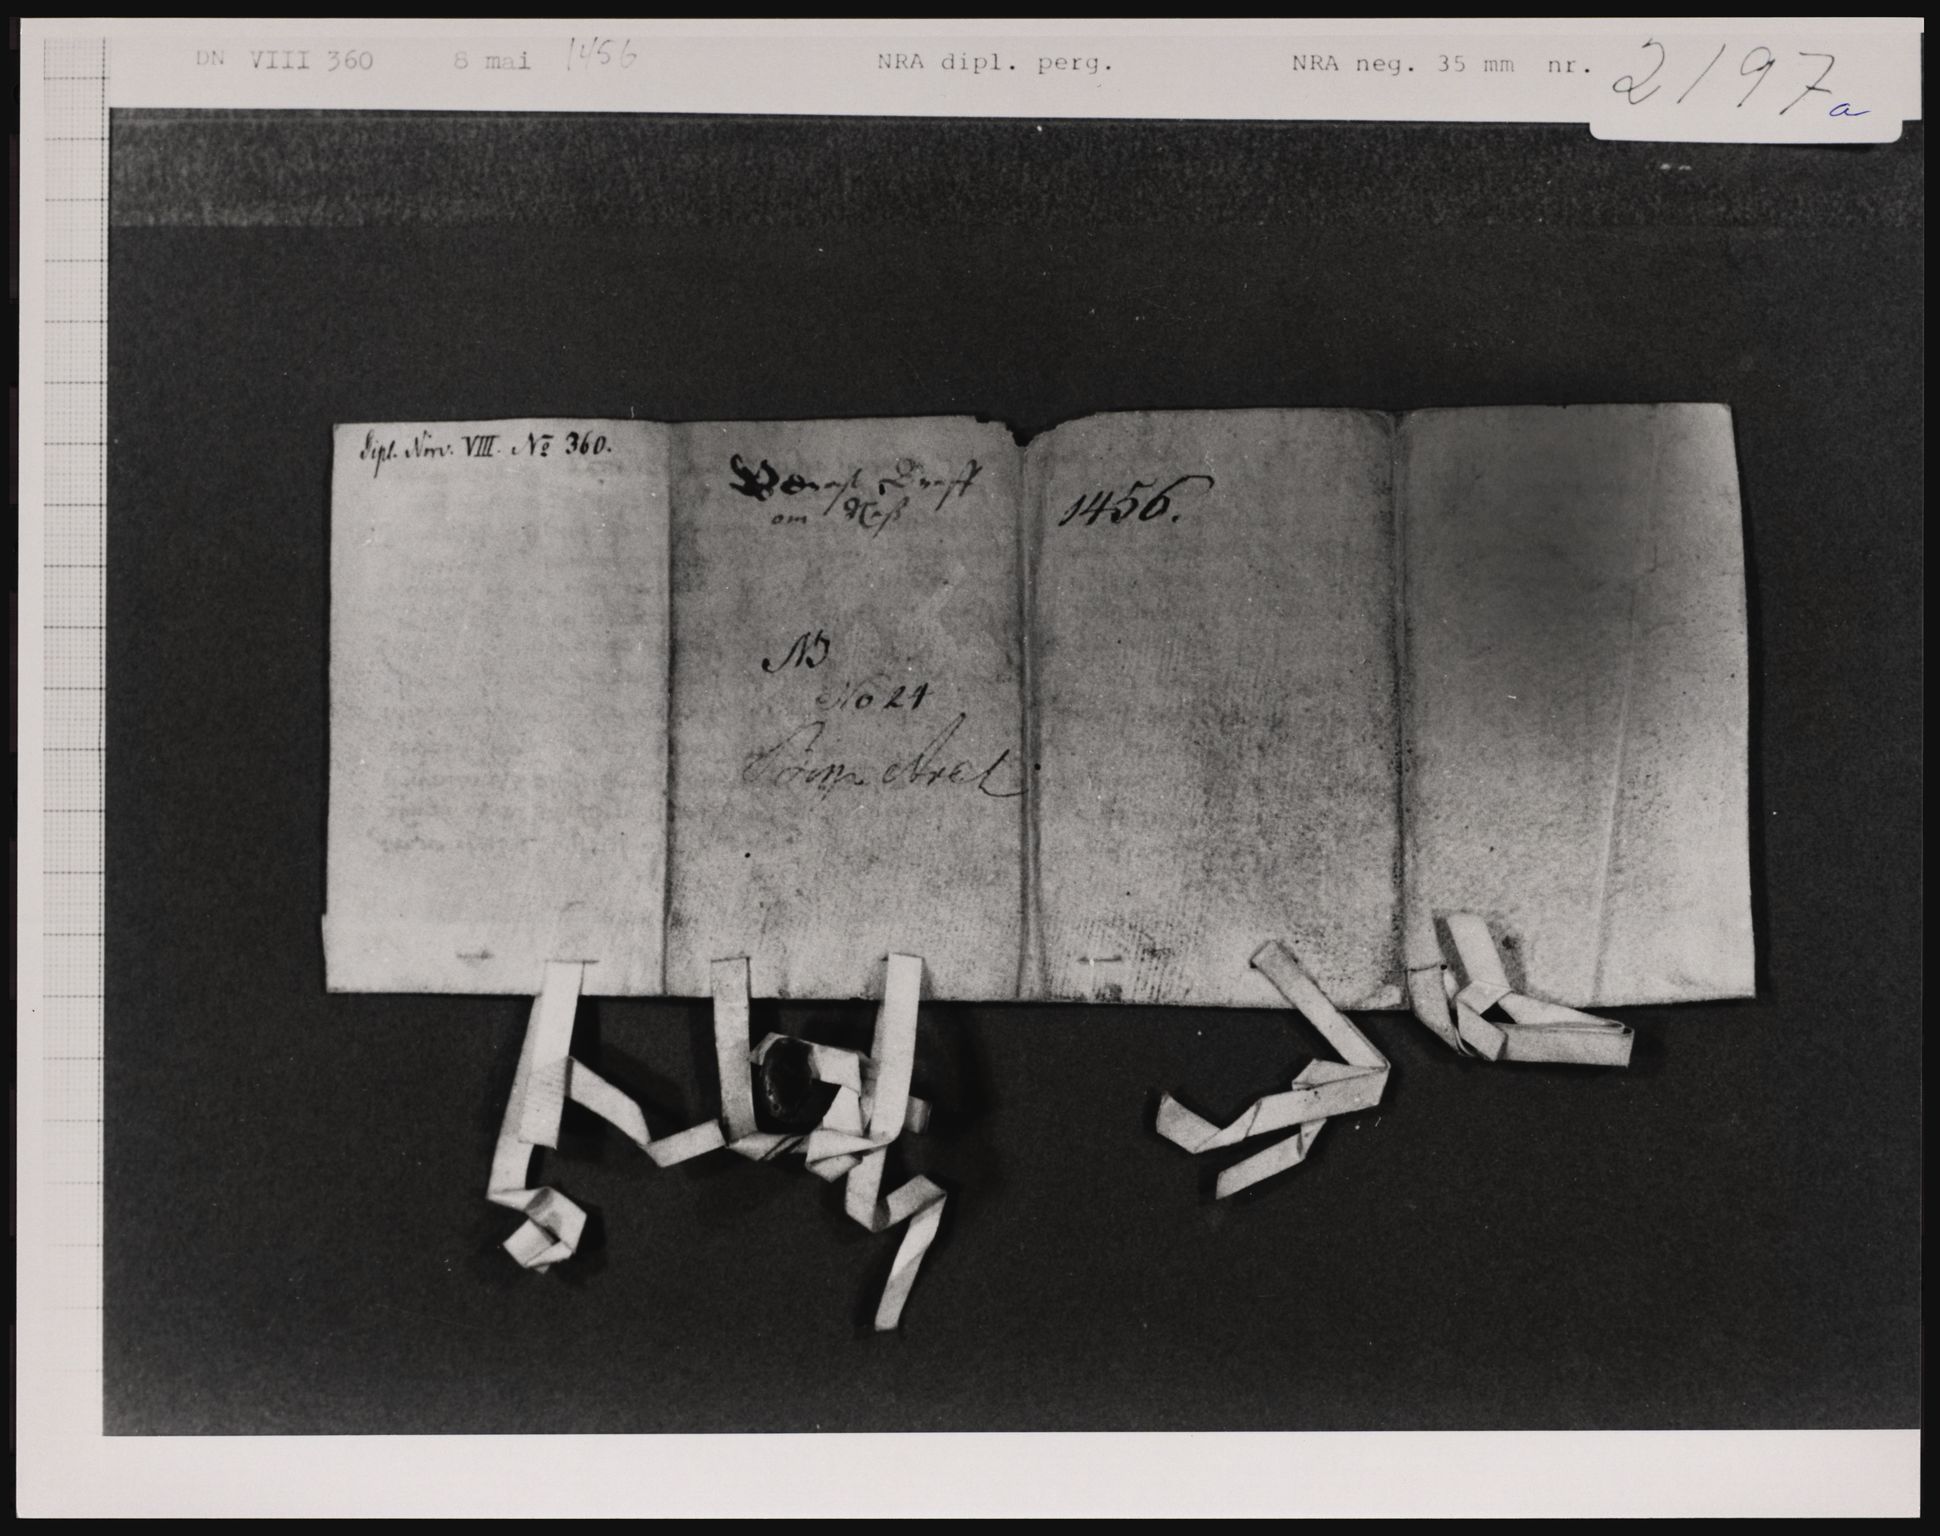 DN VIII 360 8 mai 1456 NRA dipl. perg. NRA neg. 35 mm nr. 2197a
Dipl. Norv. VIII. No 360.
om Neß
1456.
NB
No 24